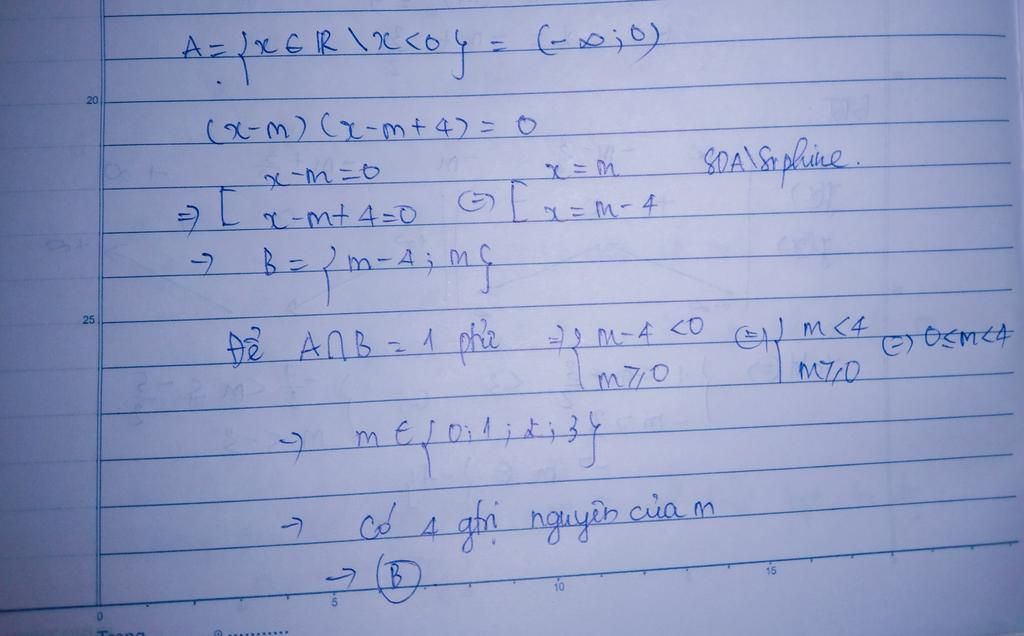 A = {x ∈ ℝ \ x < 0} = (-∞; 0)
20
(x-m)(x-m+4) = 0
⇒ [ x-m=0 x-m+4=0 ⇔ [ x=m x=m-4
→ B = {m-4; m}
25
Để A∩B = 1 phtử ⇒ { m-4 <0 m⩾0 ⇔ { m<4 m⩾0 ⇔ 0≤m<4
→ m ∈ {0; 1; 2; 3}
→ Có 4 gtrị nguyên của m
→ B
0 5 10 15
Trang